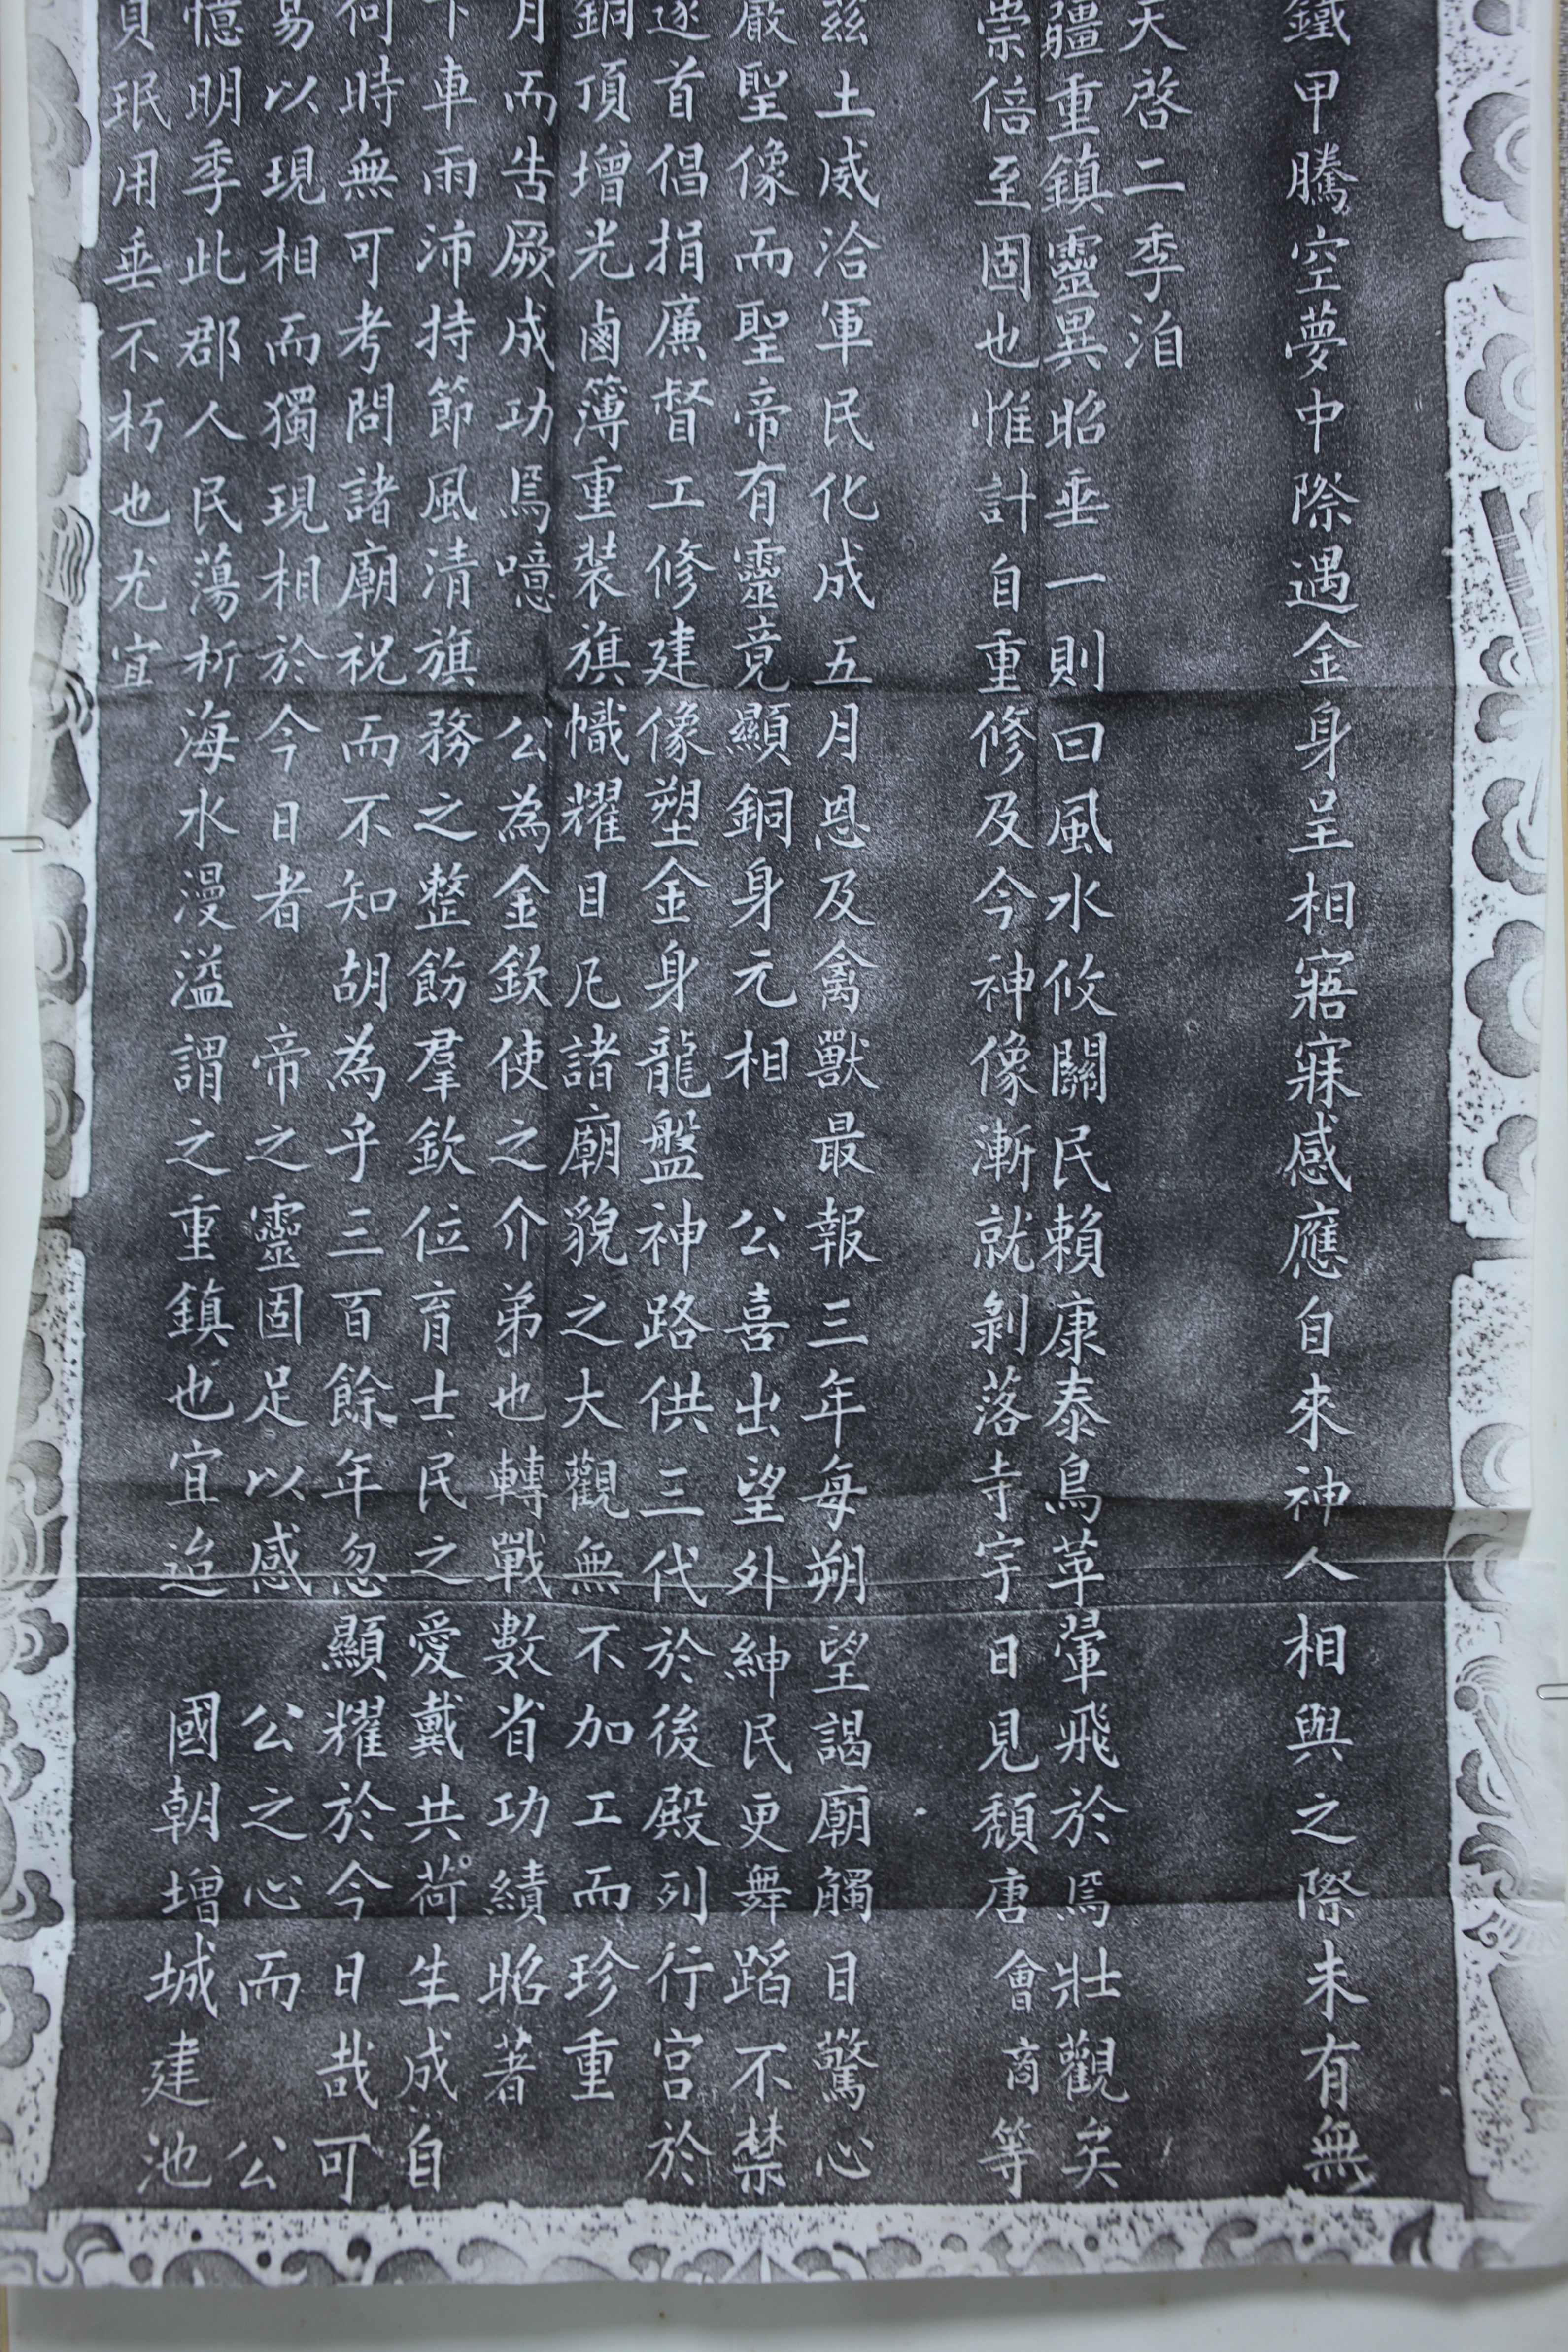 鐵甲騰空夢中際遇金身呈相寤寐感應自來神人相與之際未有無
天啓二季洎
疆重鎮靈異昭垂一則曰風水攸關民賴康泰鳥革翬飛於焉壯觀矣
崇倍至固也惟計自重修及今神像漸就剝落寺宇日見頹唐會商等
茲土威洽軍民化成五月恩及禽獸最報三年每朔望謁廟觸目驚心
嚴聖像而聖帝有靈竟顯銅身元相公喜出望外紳民更舞蹈不禁
遂首倡捐廉督工修建像塑金身龍盤神路供三代於後殿列行宮於
銅頂增光鹵簿重裝旗幟耀目凡諸廟貌之大觀無不加工而珍重
月而告厥成功焉噫公為金欽使之介弟也轉戰數省功績昭著
下車雨沛持節風清旗務之整飭羣欽位育士民之愛戴共荷生成自
何時無可考問諸廟祝而不知胡為乎三百餘年忽顯耀於今日哉可
易以現相而獨現相於今日者帝之靈固足以感公之心而公
憶明季此郡人民蕩析海水漫溢謂之重鎮也宜迨國朝增城建池
貞珉用垂不朽也尤宜